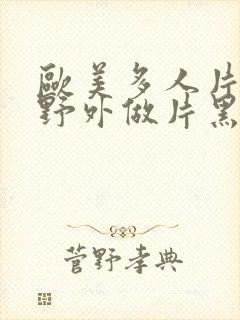 歐美多人片
野外做片黑
菅野孝典